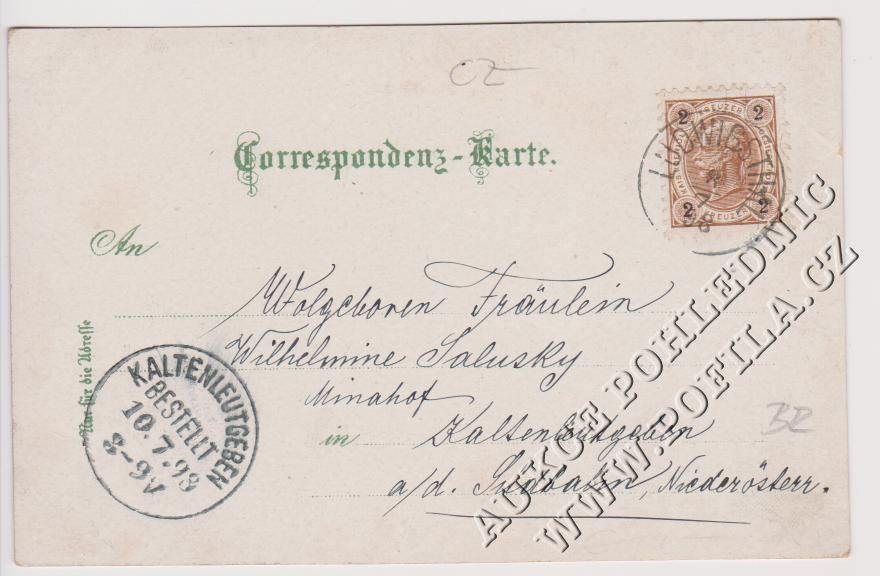 CZ
Correspondenz-Karte.
2 KREUZER 2
2 KREUZER 2
An
Wolgeboren Fräulein
Wilhelmine Salusky
Minahof
in Kaltenleutgeben
a/d. Südbahn, Niederösterr.
Nur für die Adresse
KALTENLEUTGEBEN
BESTELLT
10.7.98
8-9V
BZ
AUKCE POHLEDNIC
WWW.POFILA.CZ